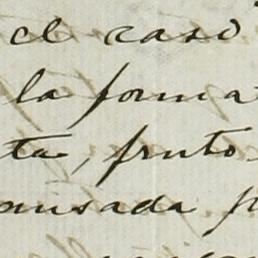 el caso
la forma
ta, fruto
ousada p